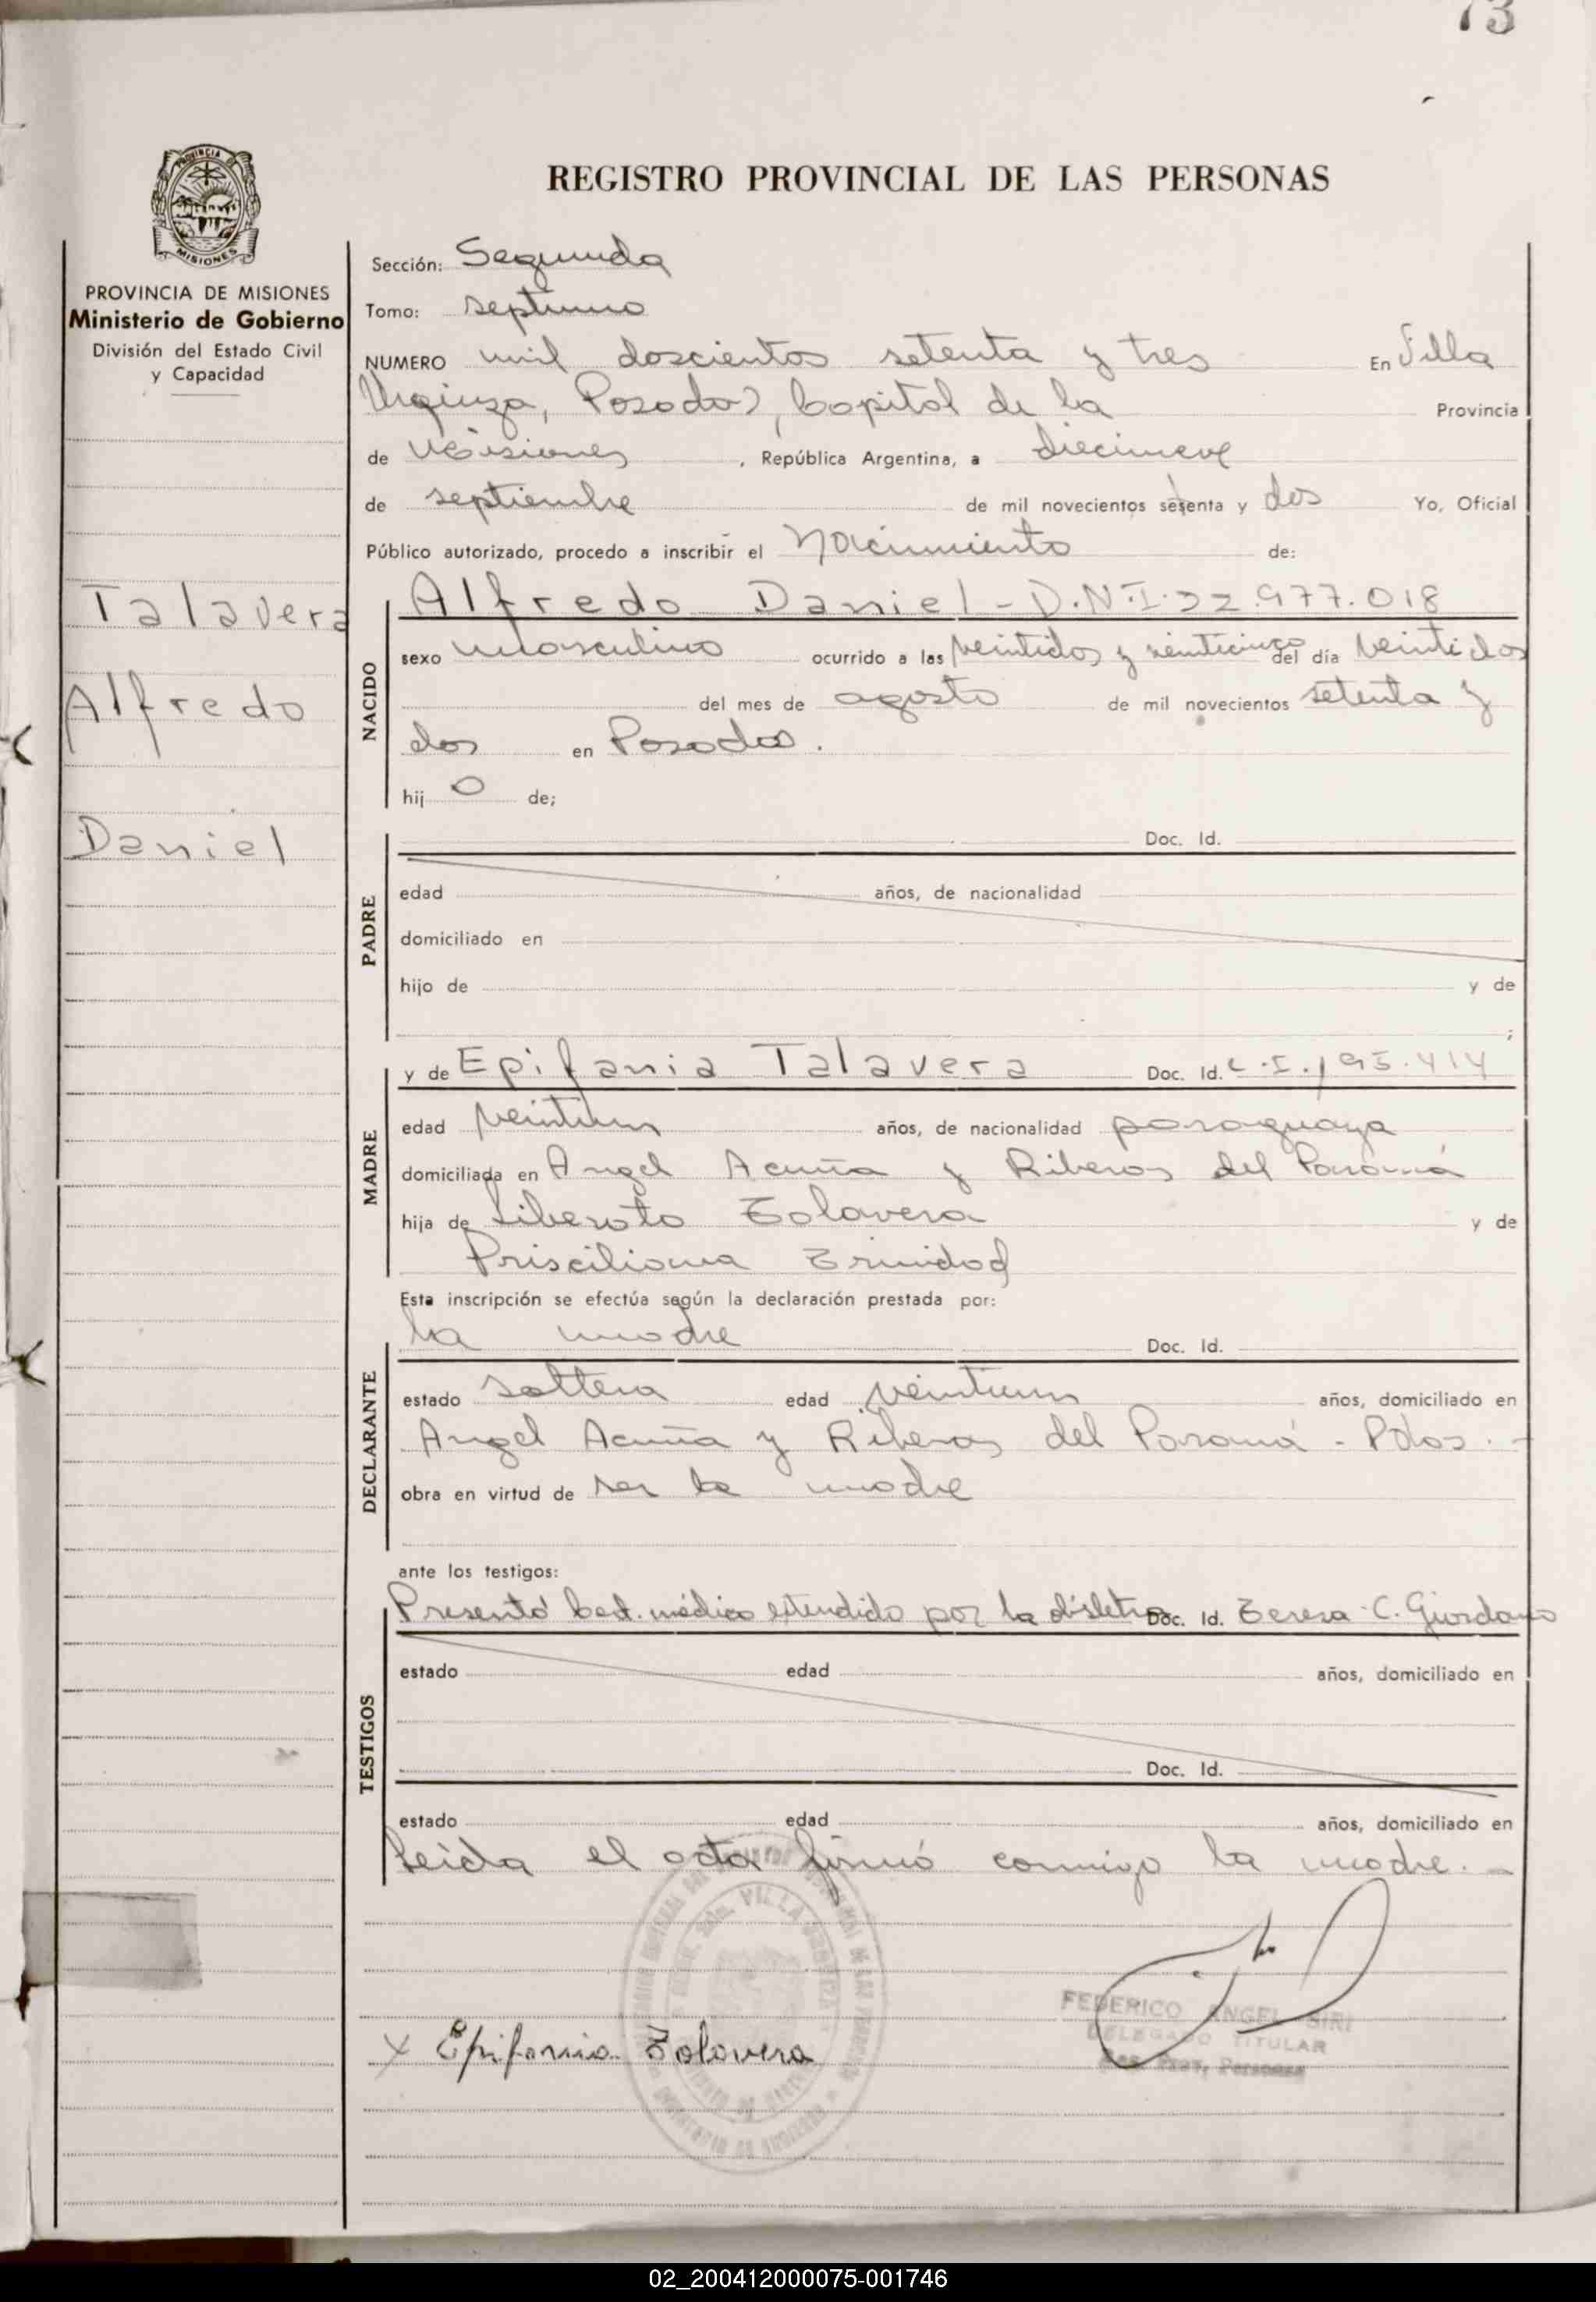 73
REGISTRO PROVINCIAL DE LAS PERSONAS
PROVINCIA DE MISIONES
Ministerio de Gobierno
División del Estado Civil
y Capacidad
Talavera
Alfredo
Daniel
Sección: Segunda
Tomo: septimo
NUMERO mil doscientos setenta y tres En Villa
Urquiza, Posadas, Capital de la Provincia
de Misiones, República Argentina, a diecinueve
de septiembre de mil novecientos setenta y dos Yo, Oficial
Público autorizado, procedo a inscribir el Nacimiento de:
NACIDO
Alfredo Daniel - D.N.I. 22.977.018
sexo Masculino ocurrido a las veintidos y veinticinco del día veintidos
del mes de agosto de mil novecientos setenta y
dos en Posadas.
hijo de;
PADRE
Doc. Id.
edad años, de nacionalidad
domiciliado en
hijo de y de
;
MADRE
y de Epifania Talavera Doc. Id. C.I. 195.414
edad veintiun años, de nacionalidad paraguaya
domiciliada en Angel Acuña y Riberas del Paraná
hija de Liberato Talavera y de
Prisciliana Trinidad
Esta inscripción se efectúa según la declaración prestada por:
DECLARANTE
la madre Doc. Id.
estado soltera edad veintiun años, domiciliado en
Angel Acuña y Riberas del Paraná - Pdas. -
obra en virtud de ser la madre
ante los testigos:
TESTIGOS
Presentó Cert. médico extendido por la obstetra Doc. Id. Teresa C. Giordano
estado edad años, domiciliado en
Doc. Id.
estado edad años, domiciliado en
Leida el acta firmó conmigo la madre. -
FEDERICO ANGEL SIRI
DELEGADO TITULAR
Reg. Prov. Personas
x Epifania Talavera
02_200412000075-001746